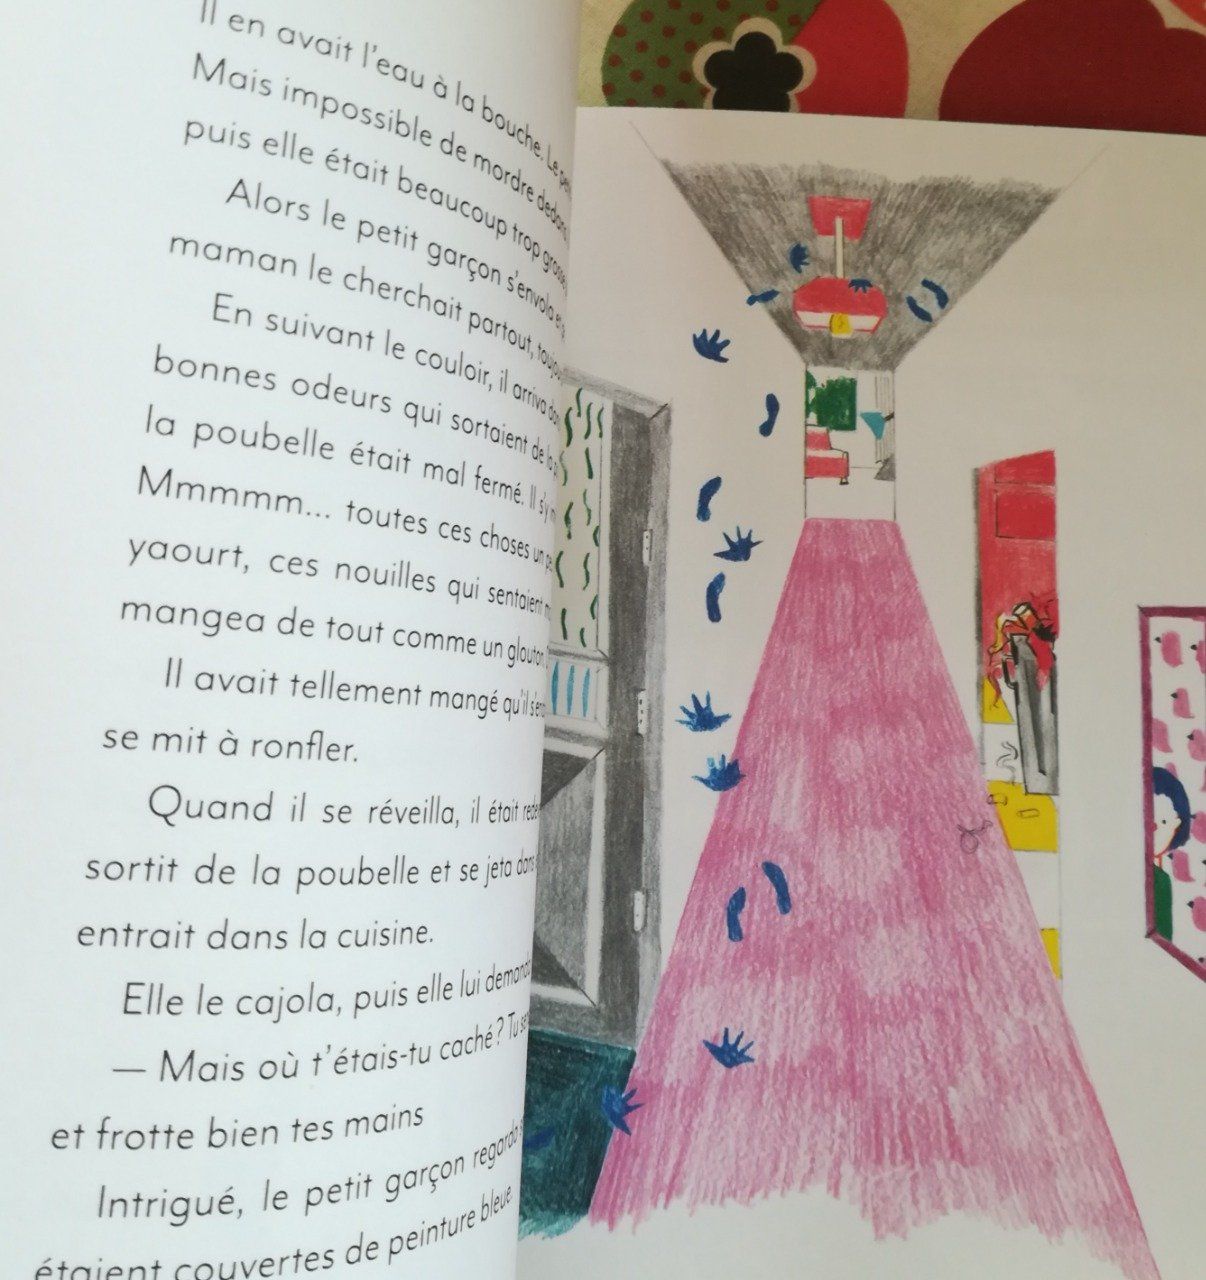 Il en avait l'eau à la bouche. Le
Mais impossible de mordre dedans
puis elle était beaucoup trop grosse
Alors le petit garçon s'envola et
maman le cherchait partout,
En suivant le couloir, il arriva
bonnes odeurs qui sortaient de la
la poubelle était mal fermé. Il s'y
Mmmmm... toutes ces choses un
yaourt, ces nouilles qui sentaient
mangea de tout comme un glouton.
Il avait tellement mangé qu'il
se mit à ronfler.
Quand il se réveilla, il était
sortit de la poubelle et se jeta
entrait dans la cuisine.
Elle le cajola, puis elle lui demanda
— Mais où t'étais-tu caché ? Tu
et frotte bien tes mains
Intrigué, le petit garçon regarda
étaient couvertes de peinture bleue.